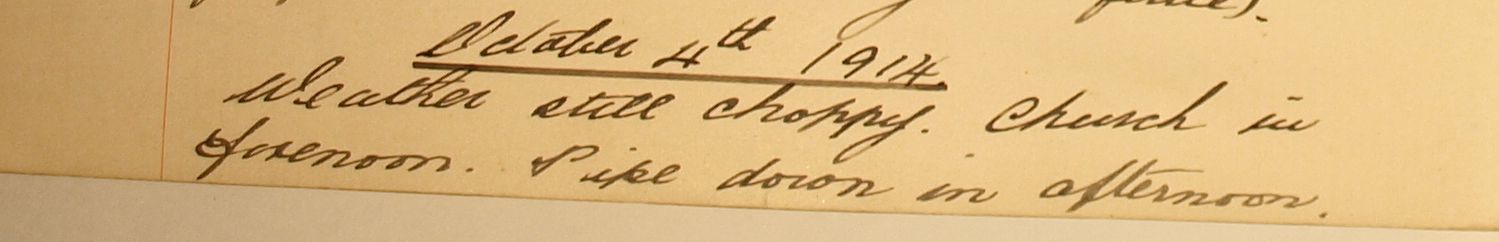 October 4th 1914.
Weather still choppy. Church in
forenoon. Pipe down in afternoon.